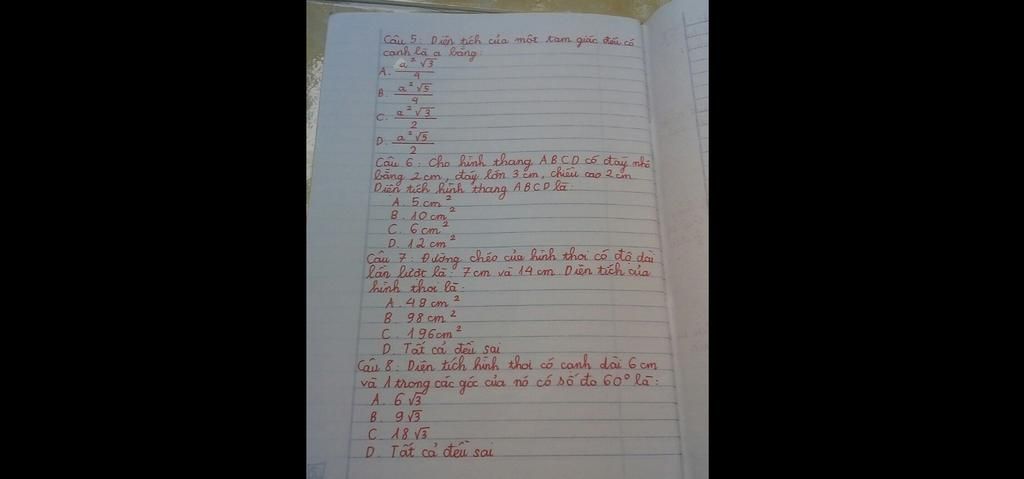 Câu 5: Diện tích của một tam giác đều có
cạnh là a bằng:
A. a²√3/4
B. a²√5/4
C. a²√3/2
D. a²√5/2
Câu 6: Cho hình thang ABCD có đáy nhỏ
bằng 2cm, đáy lớn 3cm, chiều cao 2cm
Diện tích hình thang ABCD là:
A. 5cm²
B. 10cm²
C. 6cm²
D. 12cm²
Câu 7: Đường chéo của hình thoi có độ dài
lần lượt là: 7cm và 14cm. Diện tích của
hình thoi là:
A. 49cm²
B. 98cm²
C. 196cm²
D. Tất cả đều sai
Câu 8: Diện tích hình thoi có cạnh dài 6cm
và 1 trong các góc của nó có số đo 60° là:
A. 6√3
B. 9√3
C. 18√3
D. Tất cả đều sai